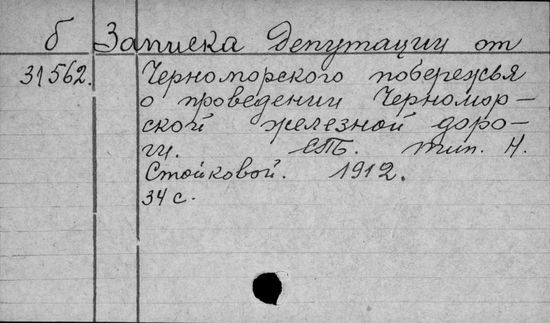 б Записка Депутации от
31562. Черноморского побережья
о проведении Черномор-
ской железной доро-
ги. СПБ. тип. Н.
Стойковой. 1912.
34 с.